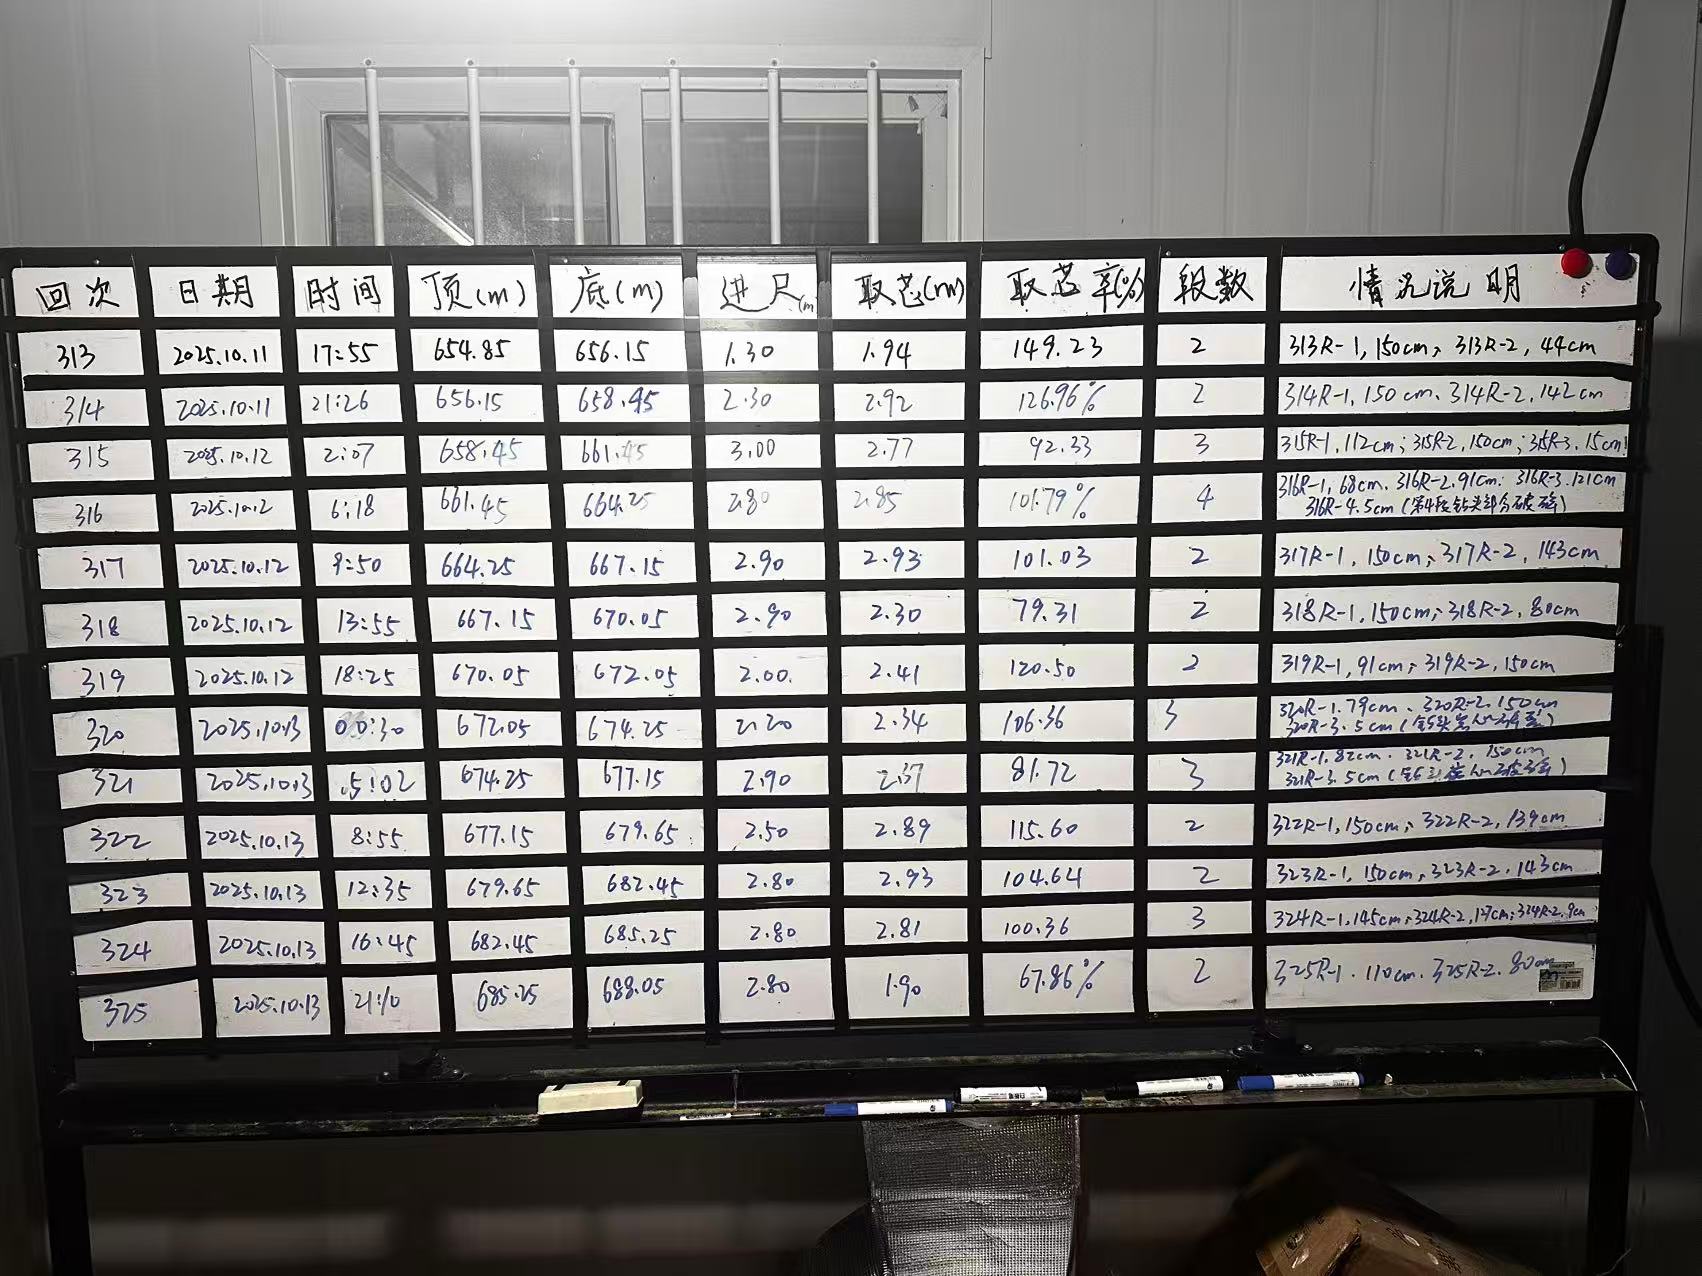 回次 日期 时间 顶(m) 底(m) 进尺(m) 取芯(m) 取芯率(%) 段数 情况说明
313 2025.10.11 17:55 654.85 656.15 1.30 1.94 149.23 2 313R-1,150cm; 313R-2,44cm
314 2025.10.11 21:26 656.15 658.45 2.30 2.92 126.96% 2 314R-1,150cm、314R-2,142cm
315 2025.10.12 2:07 658.45 661.45 3.00 2.77 92.33 3 315R-1,112cm;315R-2,150cm;315R-3,15cm
316 2025.10.12 6:18 661.45 664.25 2.80 2.85 101.79% 4 316R-1,68cm、316R-2,91cm、316R-3,121cm
316R-4.5cm(第4段钻头部分破碎)
317 2025.10.12 9:50 664.25 667.15 2.90 2.93 101.03 2 317R-1,150cm;317R-2,143cm
318 2025.10.12 13:55 667.15 670.05 2.90 2.30 79.31 2 318R-1,150cm;318R-2,80cm
319 2025.10.12 18:25 670.05 672.05 2.00 2.41 120.50 2 319R-1,91cm;319R-2,150cm
320 2025.10.13 00:30 672.05 674.25 2.20 2.34 106.36 3 320R-1.79cm、320R-2.150cm
320R-3.5cm
321 2025.10.13 5:02 674.25 677.15 2.90 2.37 81.72 3 321R-1.82cm、321R-2,150cm
321R-3.5cm
322 2025.10.13 8:55 677.15 679.65 2.50 2.89 115.60 2 322R-1,150cm;322R-2,139cm
323 2025.10.13 12:35 679.65 682.45 2.80 2.93 104.64 2 323R-1,150cm;323R-2,143cm
324 2025.10.13 16:45 682.45 685.25 2.80 2.81 100.36 3 324R-1,145cm;324R-2,127cm;324R-2,9cm
325 2025.10.13 21:10 685.25 688.05 2.80 1.90 67.86% 2 325R-1.110cm、325R-2.80cm